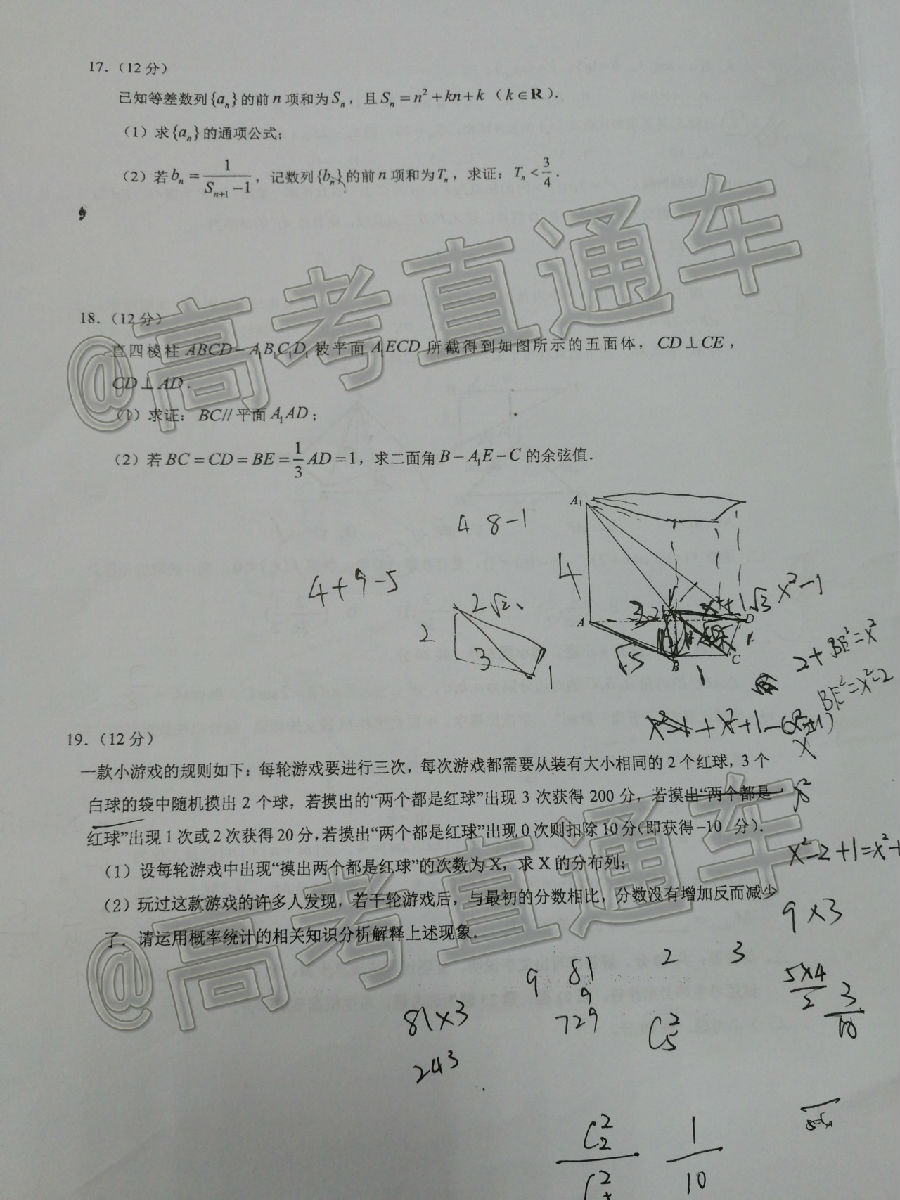 17.（12 分）
已知等差数列{aₙ}的前 n 项和为 Sₙ，且 Sₙ = n² + kn + k（k∈R）.
（1）求{aₙ}的通项公式；
（2）若 bₙ = 1/(Sₙ₊₁−1)，记数列{bₙ}的前 n 项和为 Tₙ，求证：Tₙ < 3/4.
@高考直通车
18.（12 分）
直四棱柱 ABCD−A₁B₁C₁D₁ 被平面 A₁ECD 所截得到如图所示的五面体，CD⊥CE，
CD⊥AD.
（1）求证：BC// 平面 A₁AD；
（2）若 BC = CD = BE = 1/3 AD = 1，求二面角 B−A₁E−C 的余弦值.
4 8−1
A₁
4+9−5
4
2√2
2
3
1
A
B
C
D
√5
1
√3
x²−1
x²+1
2+BE²=x²
BE²=x²−2
x
x²
x²−2+1=x²−1
19.（12 分）
一款小游戏的规则如下：每轮游戏要进行三次，每次游戏都需要从装有大小相同的 2 个红球，3 个
白球的袋中随机摸出 2 个球，若摸出的“两个都是红球”出现 3 次获得 200 分，若摸出“两个都是
红球”出现 1 次或 2 次获得 20 分，若摸出“两个都是红球”出现 0 次则扣除 10 分（即获得 −10 分）.
（1）设每轮游戏中出现“摸出两个都是红球”的次数为 X，求 X 的分布列；
（2）玩过这款游戏的许多人发现，若干轮游戏后，与最初的分数相比，分数没有增加反而减少
了. 请运用概率统计的相关知识分析解释上述现象.
@高考直通车
9×3
9 81 2 3
9
729
81×3
243
C₅²
5×4/2
3/10
C₂²
1/10